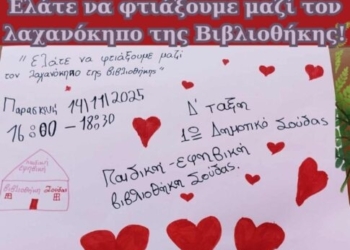 Ελάτε να φτιάξουμε μαζί τον
λαχανόκηπο της Βιβλιοθήκης!
"Ελάτε να φτιάξουμε μαζί
τον λαχανόκηπο της βιβλιοθήκης"
Παρασκευή 14/11/2025
16:00 - 18:30
Δ' τάξη
1ο Δημοτικό Σούδας
Παιδική - εφηβική
βιβλιοθήκη Σούδας.
Παιδική
Εφηβική
Βιβλιοθήκη Σούδας